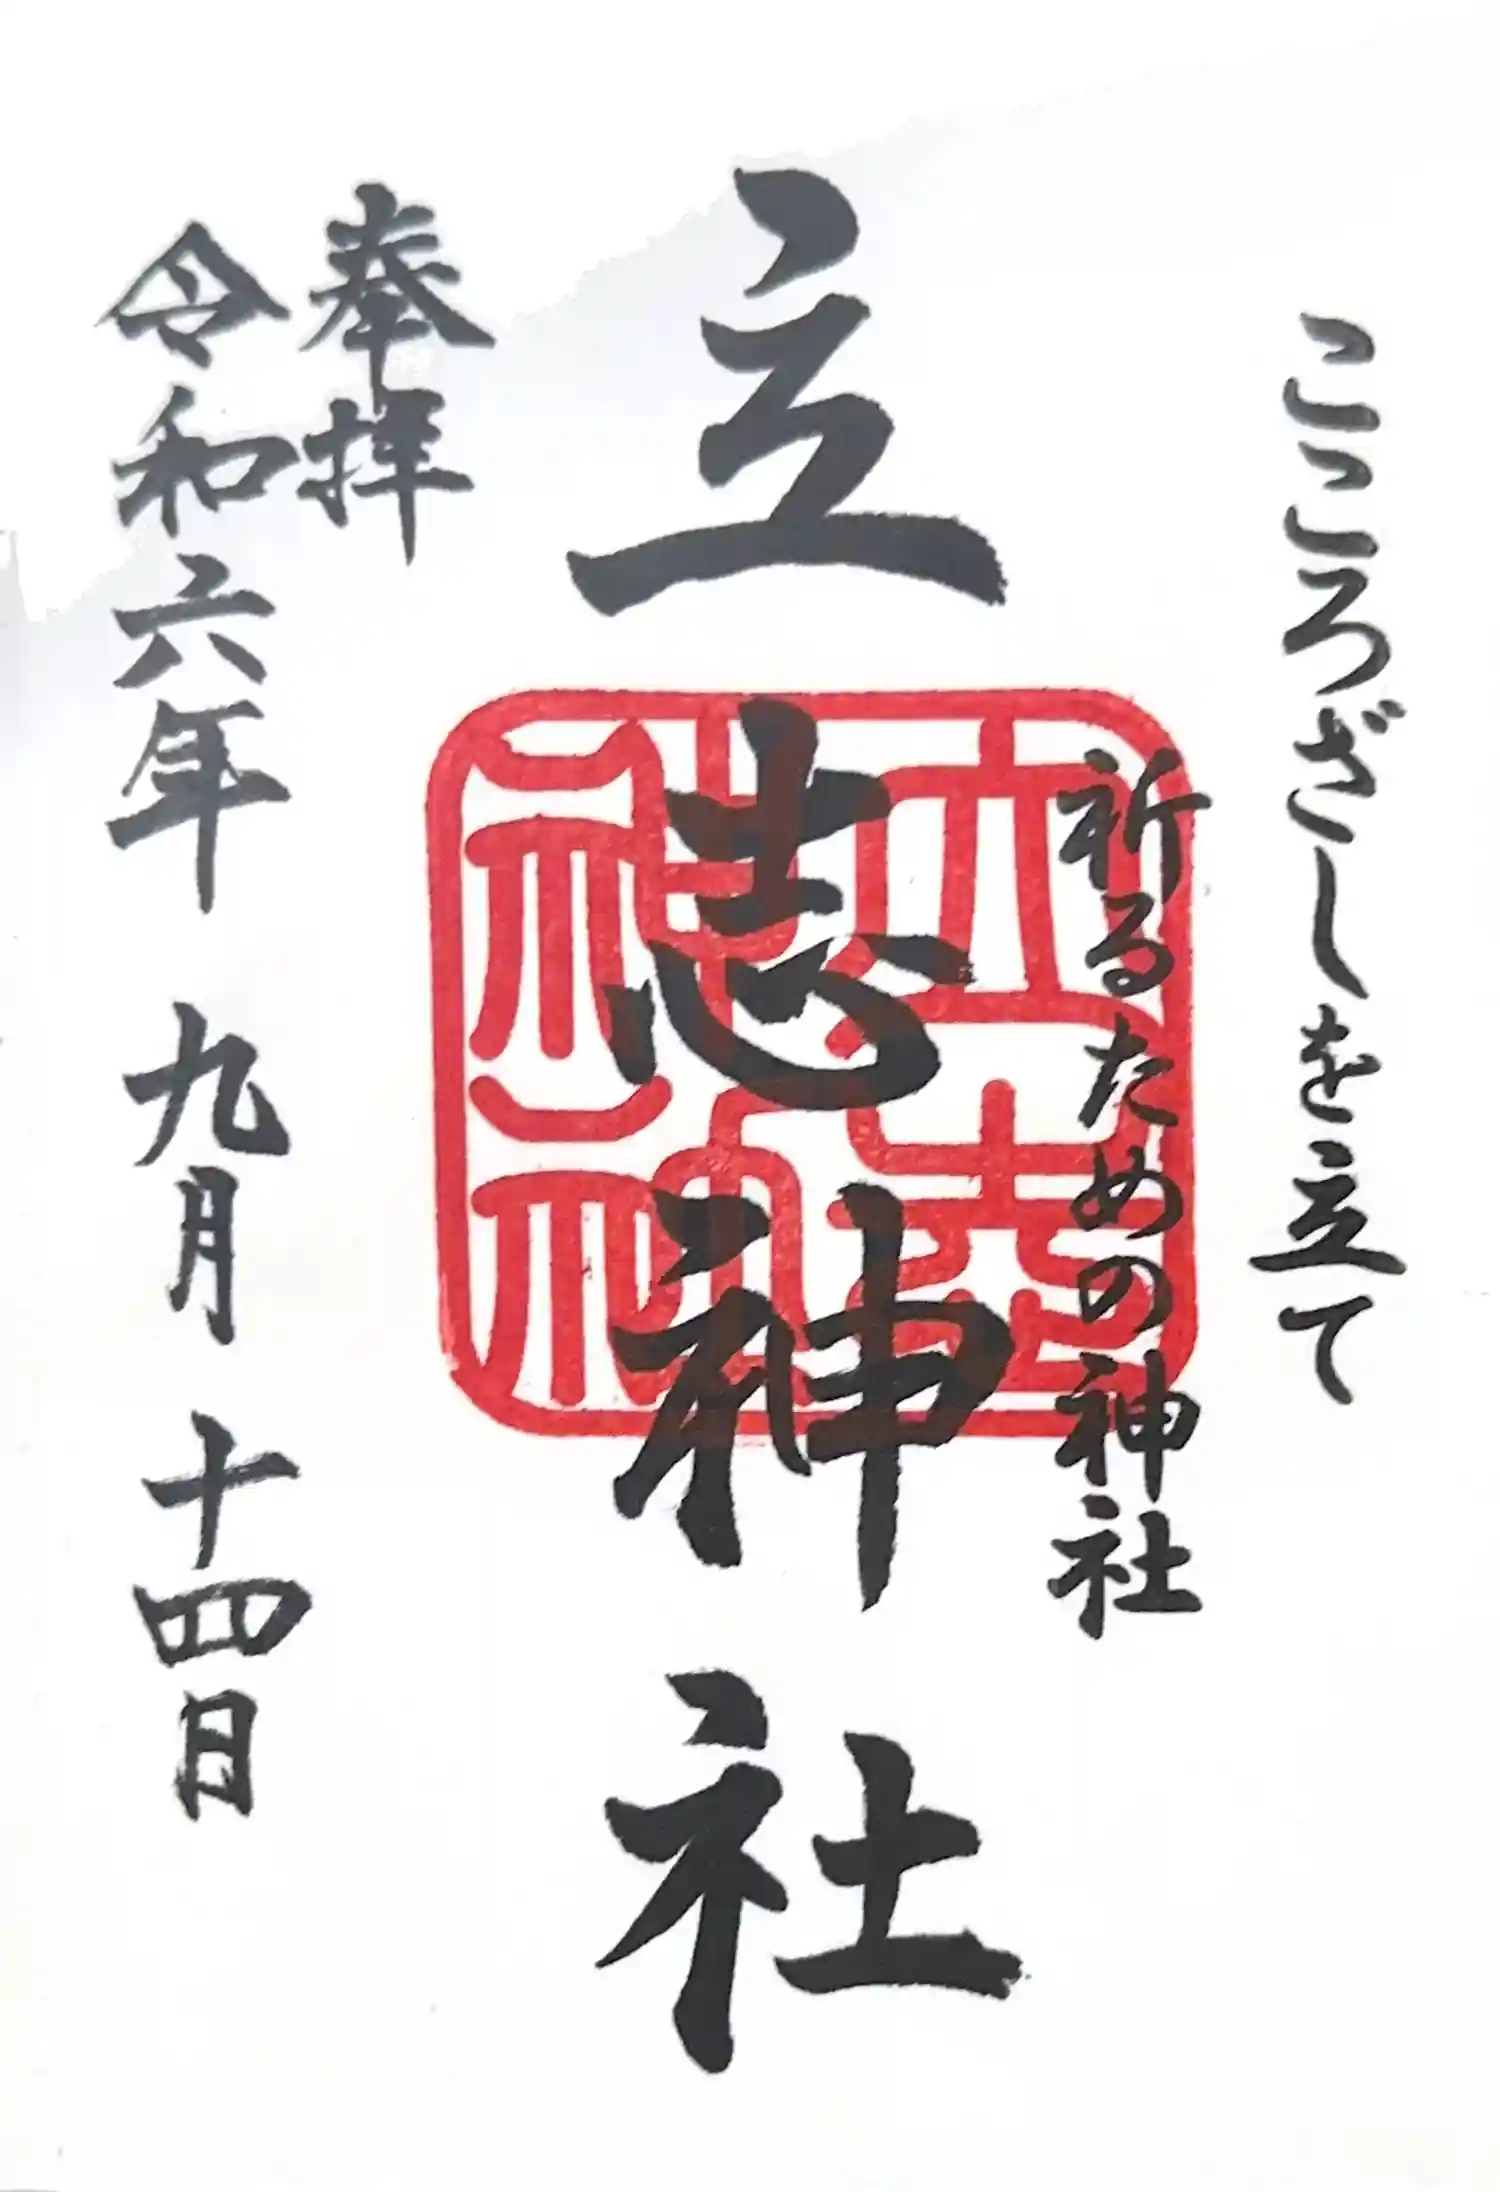 こころざしを立て
祈るための神社
立志神社
奉拝
令和六年 九月 十四日
立志神社